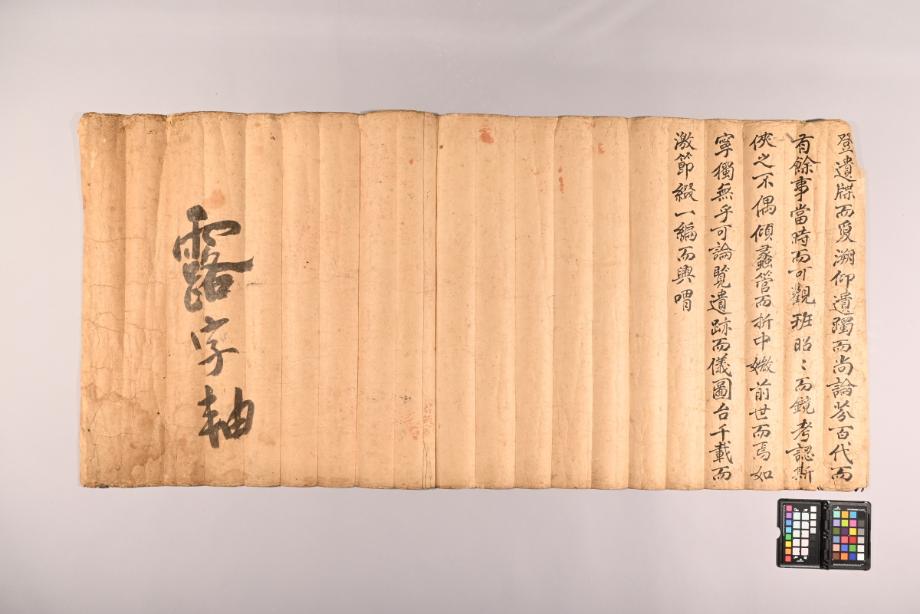 登遺牒而爰溯仰遺躅而尚論芬百代而
有餘事當時而可觀班昭〻而鏡考認斯
俠之不偶傾蠡管而折中嬓前世而焉如
寧獨無乎可論覽遺跡而儀圖台千載而
激節綴一編而輿喟
露字軸